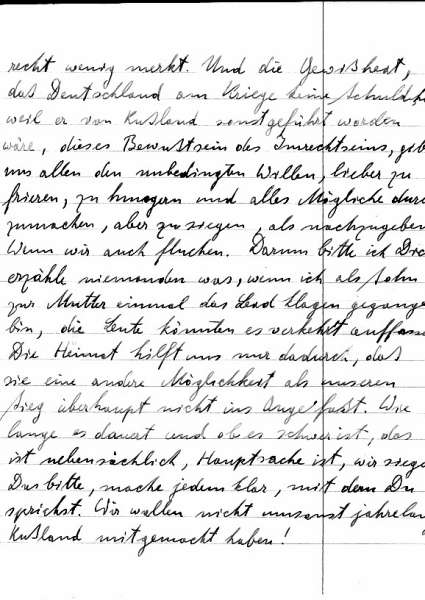 recht wenig merkt. Und die Gewißheit,
daß Deutschland am Kriege keine Schuld h
weil er von Rußland sonst geführt worden
wäre, dieses Bewußtsein des Imrechtseins, gib
uns allen den unbedingten Willen, lieber zu
frieren, zu hungern und alles Mögliche durch
zumachen, aber zu siegen, als nachzugeben
Wenn wir auch fluchen. Darum bitte ich Dich
erzähle niemanden was, wenn ich als Sohn
zur Mutter einmal das Leid klagen gegange
bin, die Leute könnten es verkehrt auffasse
Die Heimat hilft uns nur dadurch, daß
sie eine andere Möglichkeit als unseren
Sieg überhaupt nicht ins Auge faßt. Wie
lange es dauert und ob es schwer ist, das
ist nebensächlich, Hauptsache ist, wir siege
Das bitte, mache jedem klar, mit dem Du
sprichst. Wir wollen nicht umsonst jahrelan
Rußland mitgemacht haben!